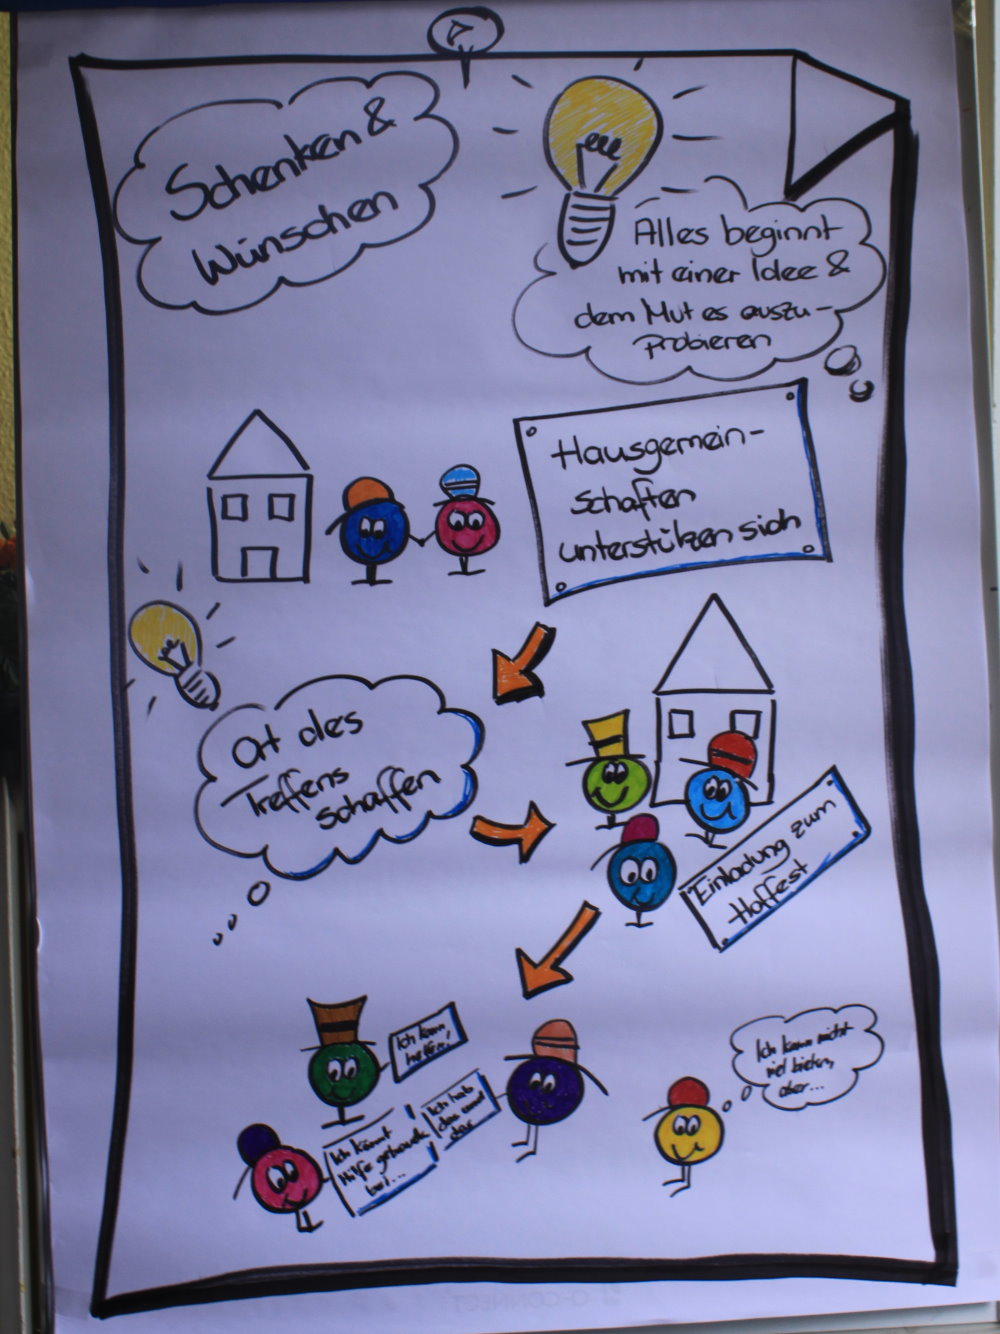 Schenken &
Wünschen
Alles beginnt
mit einer Idee &
dem Mut es auszu-
probieren
Hausgemein-
schaften
unterstützen sich
Ort des
Treffens
schaffen
Einladung zum
Hoffest
Ich kann
helfen!
Ich hab
das und
das
Ich könnt
Hilfe gebrauch.
bei...
Ich kann nicht
viel bieten,
aber...